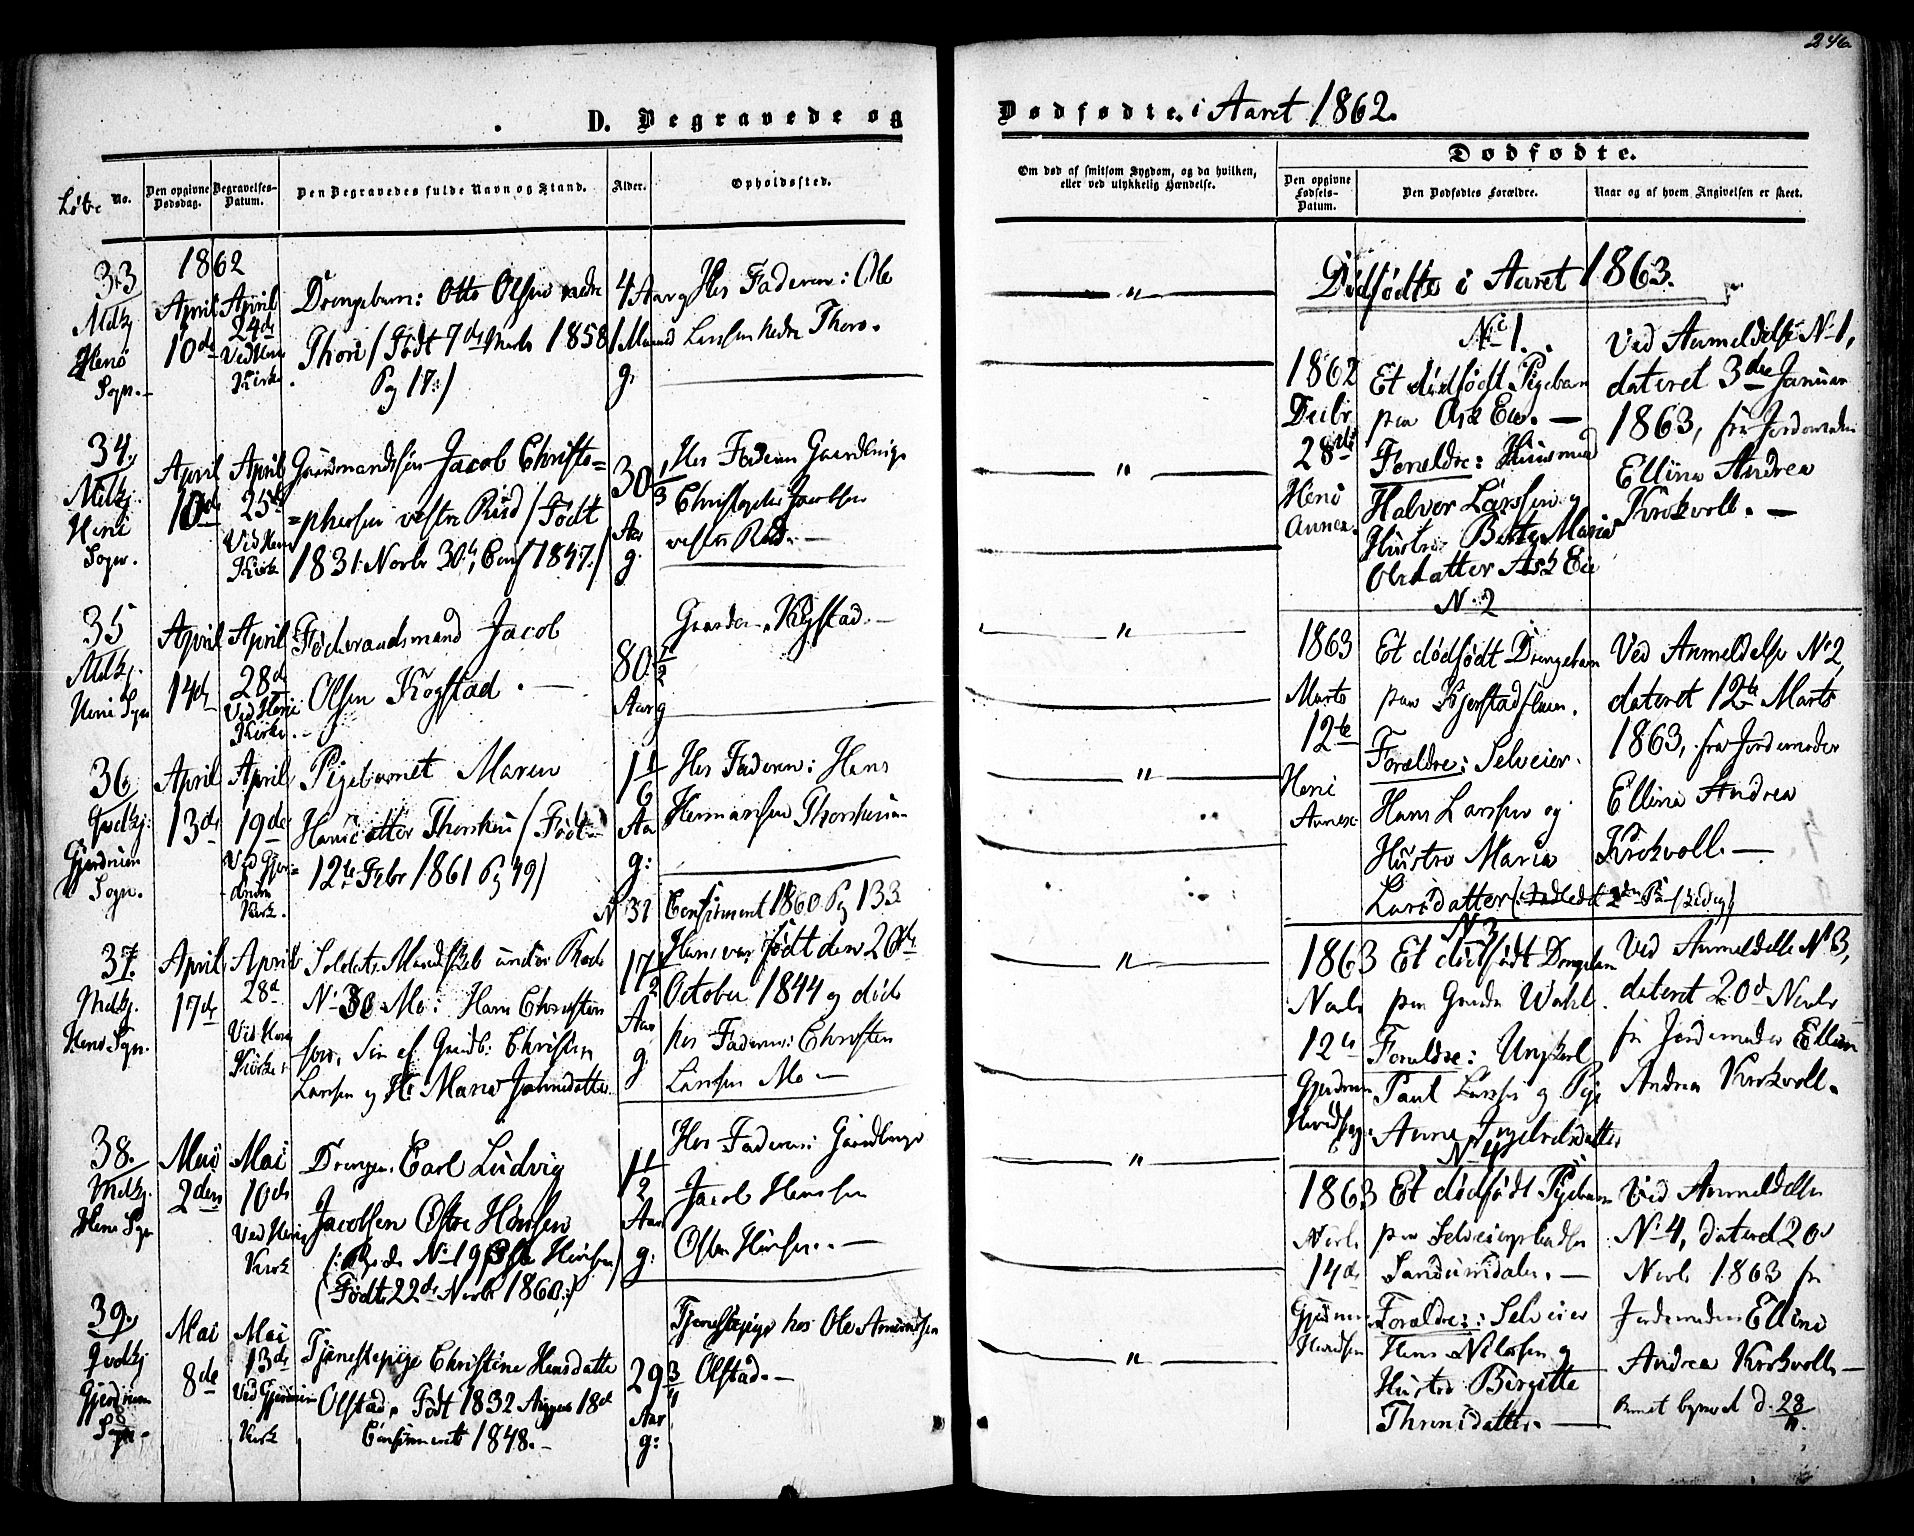 246
D. Begravede og
Dødfødte i Aaret 1862.
Løbe No.
Den opgivne Dødsdag.
Begravelses-Datum.
Den Begravedes fulde Navn og Stand.
Alder.
Opholdssted.
Om død af smitsom Sygdom, og da hvilken,
eller ved ulykkelig Hændelse.
Dødfødte.
Den opgivne Fødsels-Datum.
Den Dødfødtes Forældre.
Naar og af hvem Angivelsen er skeet.
1862
33
Mdkj
Heni
Sogn.
April
10de
April
24de
Ved Heni
Kirke
Drengebarn: Otto Olsen nedre
Thori / Født 7de Marts 1858
Pag 17:/
4 Aar og
1 Maaned
g.
Hos Faderen: Ole
Larssen nedre Thoro.
34.
Mdkj.
Heni
Sogn.
April
10de
April
25de
Ved Heni
Kirke
Gaardmandssøn Jacob Christo=
=phersen vestre Rud / Født
1831 Novbr 30te, Conf 1847./
30 1/3
Aar
g.
Hos Faderen Gaardbruger
Christopher Jacobsen
vestre Rud.
35
Mdkj.
Heni Sogn
April
14de
April
28de
Ved Heni
Kirke.
Føderaadsmand Jacob
Olsen Kogstad.
80 1/2
Aar g
Gaarden Kogstad.
36
Qvdkj.
Gjerdrum
Sogn.
April
13de
April
19de
Ved Gjer=
drum
Kirk.
Pigebarnet Maren
Hansdatter Thorshuus / Født
12te Febr 1861 Pag 49/
1 1/6
Aar
g:
Hos Faderen: Hans
Hermansen Thorshuus
37.
Mdkj.
Heni Sogn.
April
17de
April
28de
Ved Heni
Kirke.
Soldat, Mandskab under Rode
No 30 Mo: Hans Christen
sen, Søn af Gaardb: Christen
Larssen og H: Maria Johnsdatter.
No 31
17 1/2
Aar
g
Confirmeret 1860 Pag 133
Hans var født den 26de
October 1844 og døde
hos Faderen: Christen
Larssen Mo
38.
Mdkj.
Heni Sogn
Mai
2den
Mai
10de
Ved Heni
Kirk
Drengen Carl Ludvig
Jacobsen Østre Hønsen
(: Rode No 19 Østre Hønsen)
(Født 22de Novbr 1860:/
1 1/2
Aar
g:
Hos Faderen: Gaardbruger
Jacob Hanssen
Østre Hønsen.
39.
Qvdkj
Gjerdrum
Sogn.
Mai
8de
Mai
13de
Ved Gjerdrum
Kirk
Tjenestepige Christine Hansdatter
Olstad, Født 1832 August 18de
Confirmeret 1848.
29 3/4
Aar
g:
Tjenestepige hos Ole Amundsen
Olstad.
Dødfødte i Aaret 1863.
No 1.
1862
Decbr
28de
Heni
Annex.
Et dødfødt Pigebarn
paa Ask Eie.
Forældre: Huusmand
Halvor Larssen og
Hustro Berte Maria
Olsdatter Ask Eie
Ved Anmeldelse No 1,
dateret 3die Januar
1863, fra Jordemoder
Elline Andrea
Krokvoll.
No 2
1863
Marts
12te
Heni
Annex
Et dødfødt Drengebarn
paa Kjerstadhuen.
Forældre: Selveier
Hans Larssen og
Hustro Maria
Larsdatter
Ved Anmeldelse No 2,
dateret 12te Marts
1863, fra Jordemoder
Elline Andrea
Krokvoll.
No 3
1863
Novbr
12te
Gjerdrum
Hovedsogn.
Et dødfødt Drengebarn
paa Gaarden Wahl.
Forældre: Ungkarl
Paul Larssen og Pige
Anne Ingebretsdatter
Ved Anmeldelse No 3,
dateret 20de Novbr
fra Jordemoder Elline
Andrea Krokvoll.
No 4
1863
Novbr.
14de
Gjerdrum
Hovedsogn
Et dødfødt Pigebarn
paa Selveierpladsen
Sandumdalen.
Forældre: Selveier
Hans Nilssen og
Hustro Birgitte
Thronsdatter.
Ved Anmeldelse
No 4, dateret 20d
Novbr 1863 fra
Jordemoderen Elline
Andrea Krokvoll
Barnet begravet d. 28/11